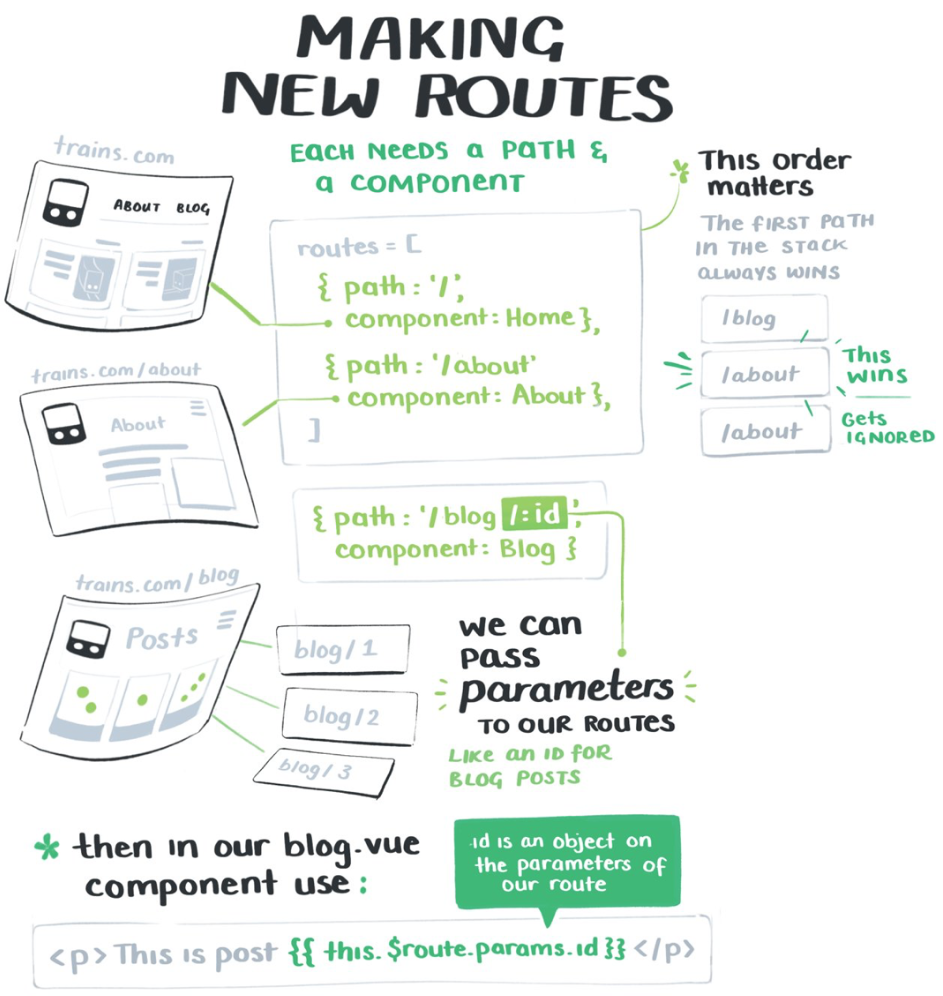 MAKING
NEW ROUTES
trains.com
ABOUT BLOG
EACH NEEDS A PATH &
A COMPONENT
routes = [
{ path : '/',
component: Home },
{ path : '/about'
component: About },
]
* This order
matters
The FIRST PATH
IN THE STACK
ALWAYS WINS
/blog
/about
/about
This
WINS
Gets
IGNORED
trains.com/about
About
{ path : '/blog /:id ',
component: Blog }
trains.com/blog
Posts
blog/1
blog/2
blog/3
we can
pass
parameters
TO OUR ROUTES
LIKE AN ID FOR
BLOG POSTS
* then in our blog.vue
component use :
id is an object on
the parameters of
our route
<p> This is post {{ this.$route.params.id }} </p>